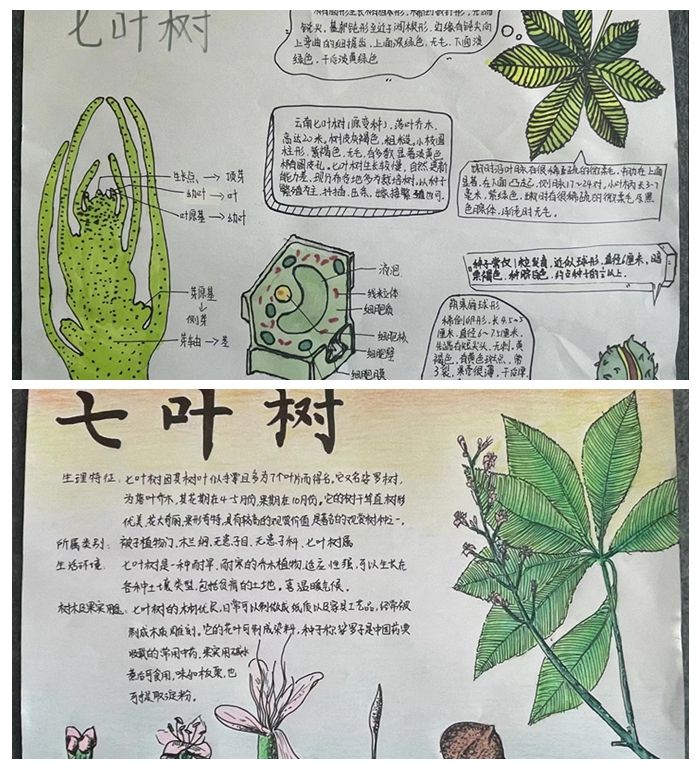 七叶树
锐尖，基部钝形至近于阔楔形，边缘有钝尖向
上弯曲的细锯齿，上面深绿色，无毛，下面淡
绿色，干后淡黄绿色
云南七叶树（原变种），落叶乔木，
高达20米，树皮灰褐色，粗糙。小枝圆
柱形，紫褐色，无毛，有多数显著淡黄色
椭圆皮孔。七叶树生长较慢，自然更新
能力差，现存
繁殖为主，扦插、压条、嫁接繁殖也可。
嫩时沿叶脉有很稀疏的微柔毛，
在上面凸起，侧脉17~24对，小叶柄长3-7
毫米，紫绿色，嫩时有很稀疏的微柔毛及黑
色腺体，渐老时无毛。
种子常仅1粒发育，近似球形，直径6厘米，暗
栗褐色，种脐白色，约占种子的½以上。
蒴果扁球形
稀倒卵形，长4.5~5
厘米，直径6~7.5厘米，
先端有短尖头，无刺，黄
褐色，有黄色斑点，常
3裂，果壳很薄，干后厚
生长点 → 顶芽
幼叶 → 叶
叶原基 → 幼叶
芽原基
↓
侧芽
芽轴 → 茎
液泡
线粒体
细胞质
细胞核
细胞壁
细胞膜
七叶树
生理特征：七叶树因其树叶似手掌且多为7个叶片而得名。它又名娑罗树，
为落叶乔木，其花期在4-5月份，果期在10月份。它的树干耸直树形
优美，花大秀丽，果形奇特，具有较高的观赏价值是著名的观赏树种之一。
所属类别：被子植物门、木兰纲、无患子目、无患子科、七叶树属
生活环境：七叶树是一种耐旱、耐寒的乔木植物，适应性强，可以生长在
各种土壤类型，包括贫瘠的土地。喜温暖气候。
树木及果实用途：七叶树的木材优良，日常可以制做成纸质以及家具工艺品，经常被
制成木质雕刻。它的花叶可制成染料，种子称娑罗子是中国药典
收载的常用中药，果实用碱水
煮后可食用，味如板栗，也
可提取淀粉。